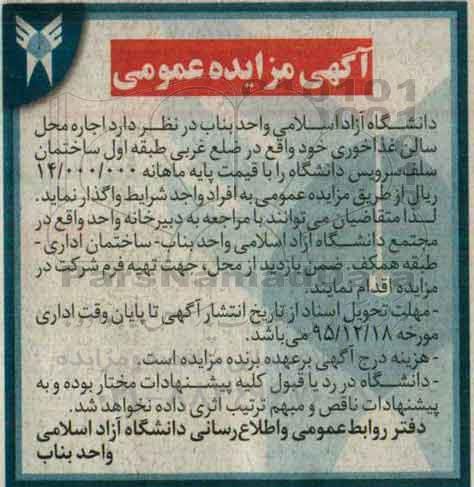 آگهی مزایده عمومی
دانشگاه آزاد اسلامی واحد بناب در نظر دارد اجاره محل
سالن غذاخوری خود واقع در ضلع غربی طبقه اول ساختمان
سلف سرویس دانشگاه را با قیمت پایه ماهانه ۱۴/۰۰۰/۰۰۰
ریال از طریق مزایده عمومی به افراد واجد شرایط واگذار نماید.
لذا متقاضیان می توانند با مراجعه به دبیرخانه واحد واقع در
مجتمع دانشگاه آزاد اسلامی واحد بناب - ساختمان اداری -
طبقه همکف، ضمن بازدید از محل، جهت تهیه فرم شرکت در
مزایده اقدام نمایند.
- مهلت تحویل اسناد از تاریخ انتشار آگهی تا پایان وقت اداری
مورخه ۹۵/۱۲/۱۸ می باشد.
- هزینه درج آگهی برعهده برنده مزایده است.
- دانشگاه در رد یا قبول کلیه پیشنهادات مختار بوده و به
پیشنهادات ناقص و مبهم ترتیب اثری داده نخواهد شد.
دفتر روابط عمومی و اطلاع رسانی دانشگاه آزاد اسلامی
واحد بناب